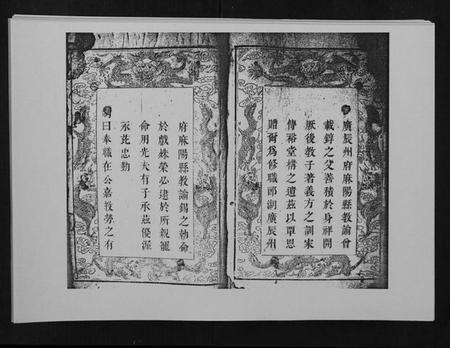 廣辰州府麻陽縣教諭曾
載錞之父善積於身祥開
厥後教子著義方之訓家
傳裕堂構之道茲以覃恩
贈爾為修職郎湖廣辰州
府麻陽縣教諭錫之勅命
於戲殊榮必逮於所親寵
命用光夫有子承茲優渥
永茂忠勤
勅曰奉職在公嘉教勞之有